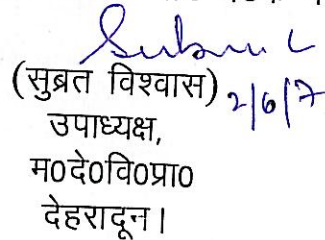 (सुब्रत विश्वास)
2/6/7
उपाध्यक्ष,
म०दे०वि०प्रा०
देहरादून।